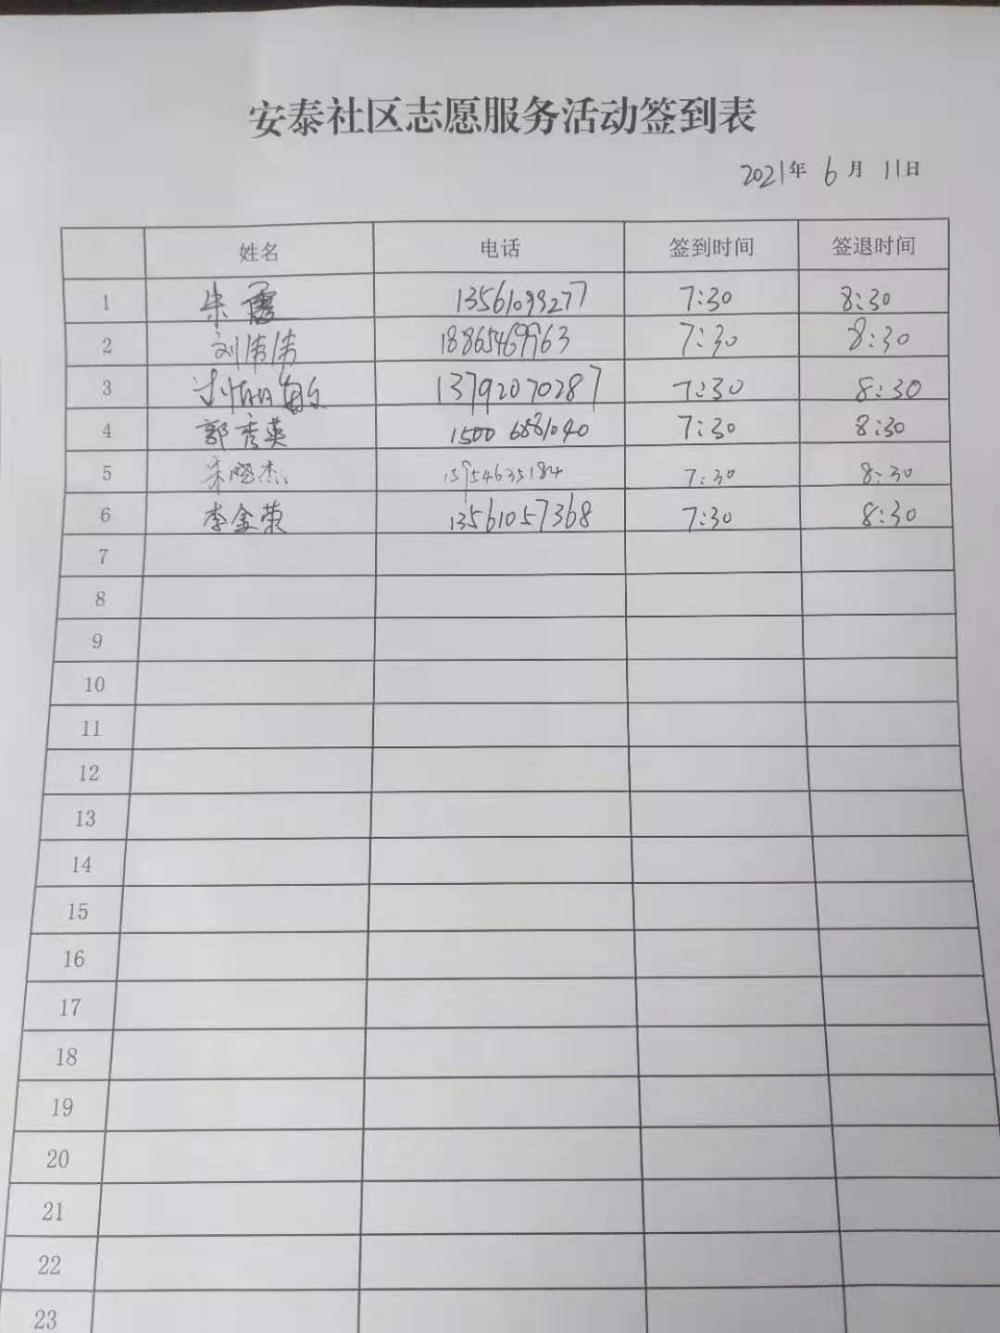 安泰社区志愿服务活动签到表
2021年 6月 11日
姓名 电话 签到时间 签退时间
1 朱 13561099277 7:30 8:30
2 刘伟伟 18865469963 7:30 8:30
3 13792070287 7:30 8:30
4 郭秀英 1500 6881040 7:30 8:30
5 朱晓杰 15954635184 7:30 8:30
6 李金荣 13561057368 7:30 8:30
7
8
9
10
11
12
13
14
15
16
17
18
19
20
21
22
23